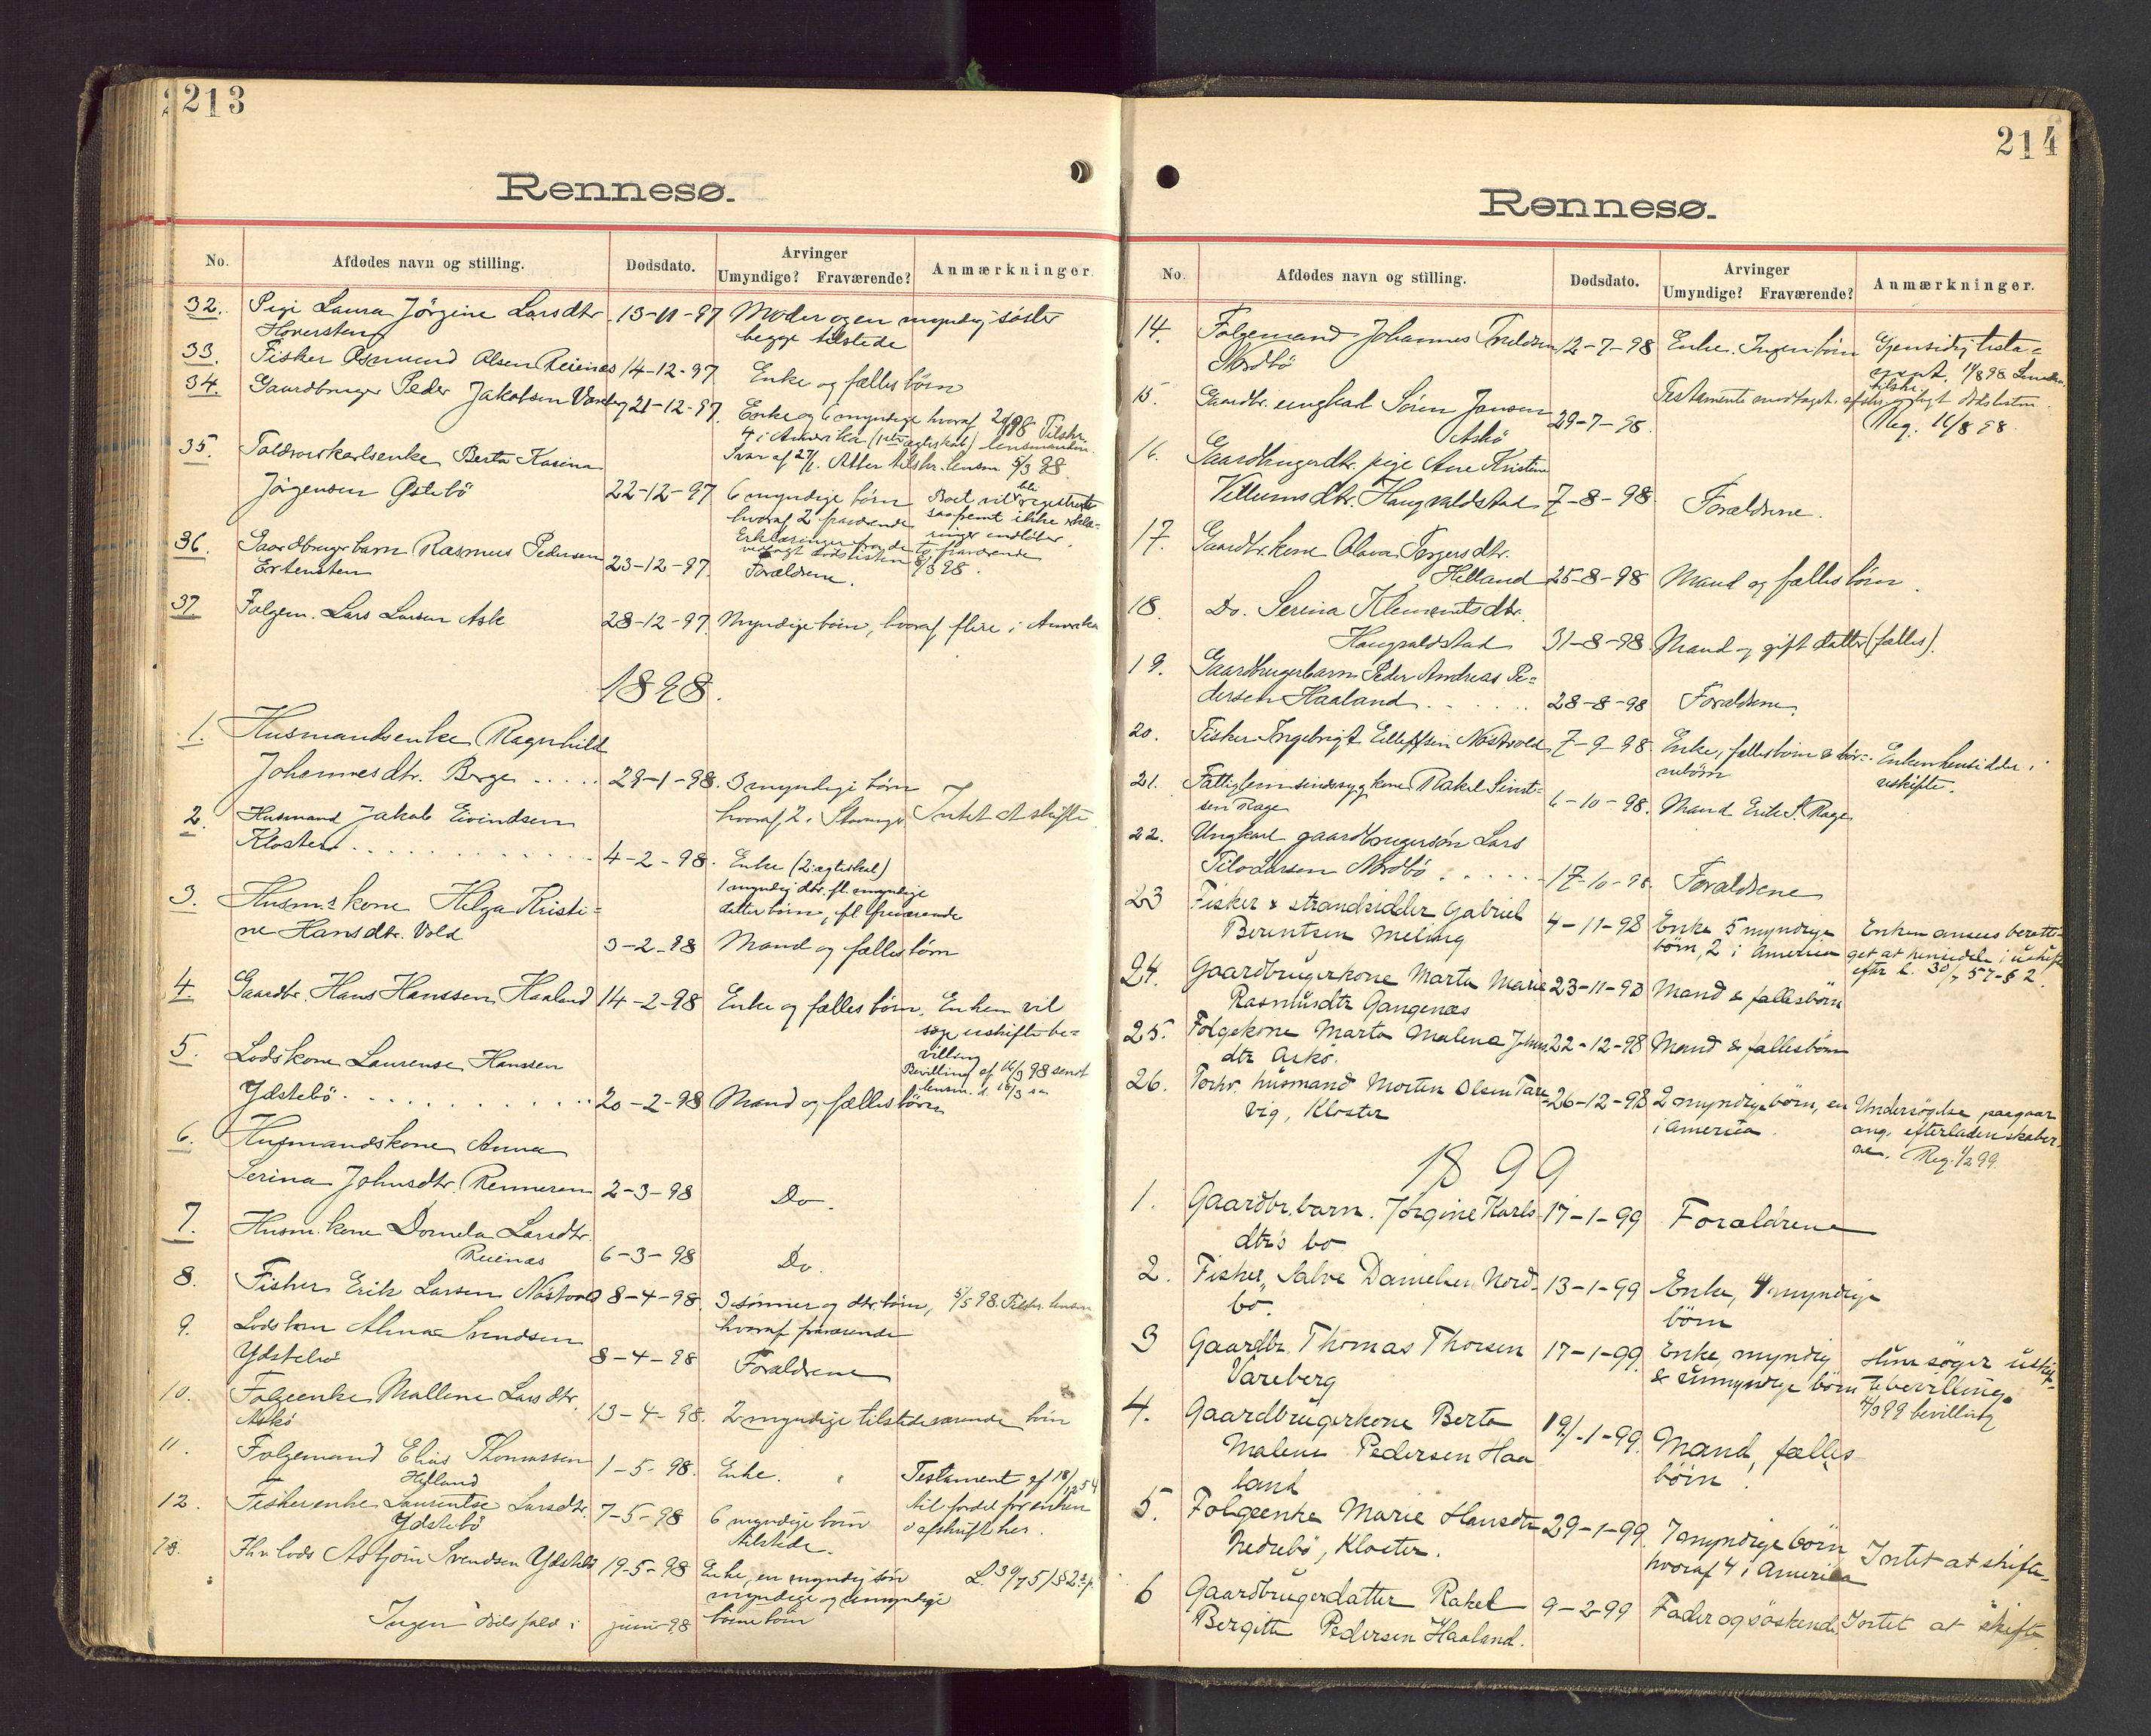 213
Rennesø.
No. Afdødes navn og stilling. Dødsdato. Arvinger Umyndige? Fraværende? Anmærkninger.
32. Pige Laura Jörgine Larsdtr. 13-11-97 Moder og en myndig söster
Hoversten begge tilstede
33. Fisker Asmund Olsen Reienæs 14-12-97 Enke og fælles börn
34. Gaardbruger Peder Jakobsen Vareberg 21-12-97. Enke og 6 myndige hvoraf
4 i Amerika (1ste ægteskab) lensmanden
Svar af 27/1. Atter tilskr. lensm. 5/3 98
35. Berta Karina
Jörgensen Östebö 22-12-97 6 myndige börn Boet vil bli registreret
hvoraf 2 fraværende saafremt ikke erklæ-
ringer indløber.
Erklæringer fra de to fraværende
vedlagt dödslisten 8/3 98.
36. Gaardbrugerbarn Rasmus Pedersen
Ertensten 23-12-97. Forældrene.
37 Folgem. Lars Larsen Ask 28-12-97. Myndige börn, hvoraf flere i Amerika
1898.
1. Husmandsenke Ragnhild
Johannesdtr. Berge ..... 29-1-98. 3 myndige börn
hvoraf 2 i Stavanger Intet at skifte
2. Husmand Jakob Eivindsen
Kloster ........... 4-2-98. Enke (2. ægteskab)
1 myndig dtr. fl. myndige
datterbörn, fl. fraværende
3. Husm.s kone Helga Kristi=
ne Hansdtr. Vold 3-2-98 Mand og fællesbörn
4. Gaardbr. Hans Hanssen Haaland 14-2-98 Enke og fælles börn. Enken vil
söge uskiftebe=
villing
Bevilling af 16/3 98 sendt
lensm. d. 18/3 s.a.
5. Lodskone Laurense Hanssen
Ydstebö ........... 20-2-98 Mand og fælles börn
6. Husmandskone Anna
Serina Johnsdtr. Renneren 2-3-98 Do.
7. Husm.kone Larsdtr.
Reienæs 6-3-98 Do.
8. Fisker Erik Larsen Nåstvold 8-4-98. 3 sönner og dtr. börn, 5/5 98. Tilskr. lensm
hvoraf fraværende
9. Alma Svendsen
Ydstebö 8-4-98 Forældrene
10. Folgeenke Mallene Larsdtr.
Askö 13-4-98. 2 myndige tilstedeværende börn
11. Folgemand Elias Thomassen
Helland 1-5-98. Enke. Testament af 18/12 54
til fordel for enken
i afskrift her.
12. Fiskerenke Laurentse Larsdtr.
Ydstebö 7-5-98 6 myndige börn
tilstede.
13. Fhv. lods Asbjörn Svendsen Ydstebö 19-5-98 Enke, en myndig sön
myndige og umyndige
börnebörn L. 30/7 51 § 2
Ingen dödsfald i juni 98
214
Rennesø.
No. Afdødes navn og stilling. Dødsdato. Arvinger Umyndige? Fraværende? Anmærkninger.
14. Folgemand Johannes
Nordbö 12-7-98 Enke. Ingen börn Gjensidig testa=
ment. 11/8 98
tilskr.
15. Gaardbr. ungkarl Sören Jansen
Askö 29-7-98. Testamente modtaget.
Reg. 16/8 98.
16. Gaardbrugerdtr. pige Ane Kristine
Villumsdtr. Haugvaldstad 7-8-98 Forældrene.
17. Gaardbr.kone Olava Torgersdtr.
Helland 25-8-98 Mand og fælles börn.
18. Do. Serina Klementsdtr.
Haugvaldstad 31-8-98 Mand og gift datter (fælles).
19. Gaardbrugerbarn Peder Andreas Pe=
dersen Haaland ...... 28-8-98 Forældrene.
20. Fisker Ingebrigt Eilefsen Nåstvold 7-9-98 Enke, fællesbörn & bör=
nebörn Enken hensidder i
uskifte.
21. Fattiglem sindssyg kone Rakel
Rage 6-10-98. Mand Erik S. Rage
22. Ungkarl gaardbrugersön Lars
Larsen Nordbö ..... 17-10-98. Forældrene
23 Fisker & strandsidder Gabriel
Berentsen Meling 4-11-98 Enke 5 myndige
börn, 2 i Amerika Enken ansees beretti-
get at hensidde i uskifte
efter l. 30/7 57 - § 2.
24. Gaardbrugerkone Marta Marie
Rasmusdtr Gangenæs 23-11-98 Mand & fællesbörn
25. Folgekone Marta Malena Johns
dtr Askö. 22-12-98 Mand & fællesbörn
26. Forhv. husmand Morten Olsen Tare-
vig, Kloster 26-12-98 2 myndige börn, en
i Amerika. Undersögelse paagaar
ang. efterladenskaber-
ne. Reg. 1/2 99.
1899
1. Gaardbr. barn. Jörgine Karls
dtr's bo 17-1-99 Forældrene
2. Fisker, Salve Danielsen Nord-
bö. 13-1-99 Enke, 4 myndige
börn
3 Gaardbr. Thomas Thorsen
Vareberg 17-1-99. Enke, myndig
& umyndige börn Hun söger uskif-
tebevilling.
4/3 99 bevilling
4. Gaardbrugerkone Berta
Malene Pedersen Haa
land 19-1-99. Mand, fælles
börn
5. Folgeenke Marie Hansdtr
Nedrebö, Kloster. 29-1-99. 7 myndige börn
hvoraf 4 i Amerika Intet at skifte
6 Gaardbrugerdatter Rakel
Bergitte Pedersen Haaland. 9-2-99 Fader og söskende Intet at skifte